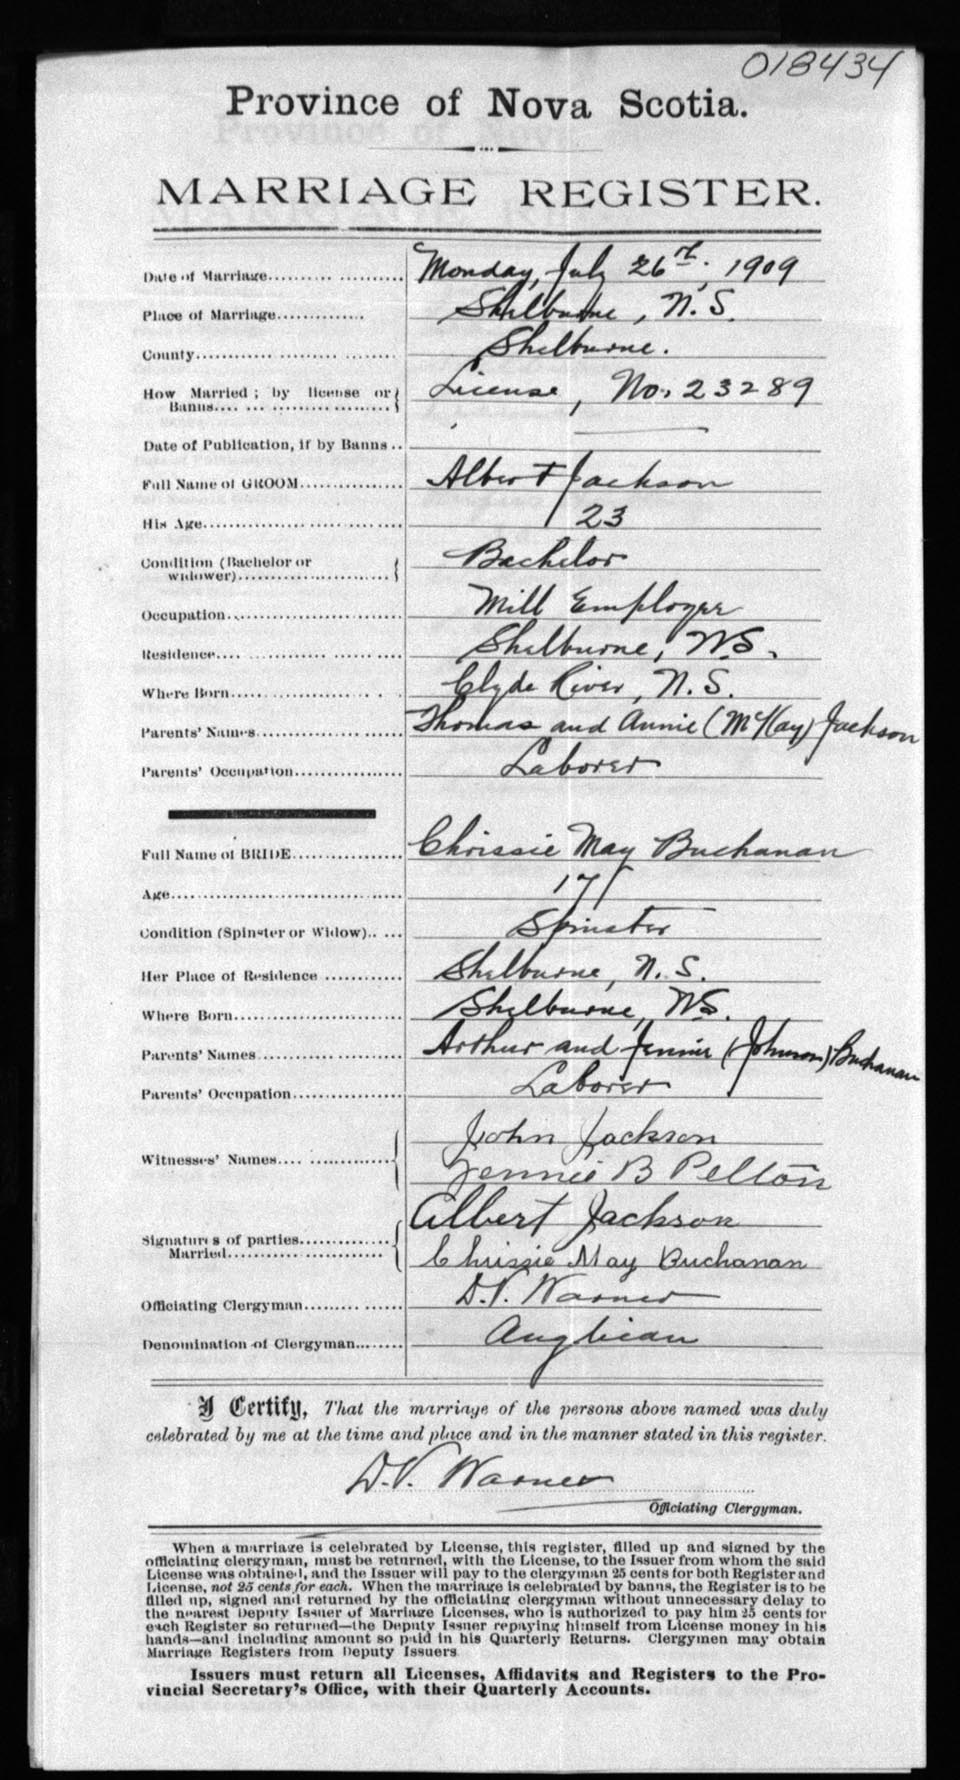 018434
Province of Nova Scotia.
MARRIAGE REGISTER.
Date of Marriage.................... Monday, July 26th. 1909
Place of Marriage............. Shelburne, N.S.
County............................ Shelburne.
How Married; by license or License, No. 23289
Banns........................
Date of Publication, if by Banns ..
Full Name of GROOM............... Albert Jackson
His Age............................ 23
Condition (Bachelor or Bachelor
widower)........................
Occupation........................ Mill Employee
Residence........................ Shelburne, N.S.
Where Born........................ Clyde River, N.S.
Parents' Names.................... Thomas and Annie (McKay) Jackson
Parents' Occupation................ Laborer
Full Name of BRIDE................ Chrissie May Buchanan
Age................................ 17
Condition (Spinster or Widow)..... Spinster
Her Place of Residence ............ Shelburne, N.S.
Where Born........................ Shelburne, N.S.
Parents' Names.................... Arthur and Jennie (Johnson) Buchanan
Parents' Occupation................ Laborer
John Jackson
Witnesses' Names.................. Jennie B Pelton
Signatures of parties.............. Albert Jackson
Married........................ Chrissie May Buchanan
Officiating Clergyman.............. D.V. Warner
Denomination of Clergyman........ Anglican
I Certify, That the marriage of the persons above named was duly
celebrated by me at the time and place and in the manner stated in this register.
D.V. Warner
Officiating Clergyman.
When a marriage is celebrated by License, this register, filled up and signed by the
officiating clergyman, must be returned, with the License, to the Issuer from whom the said
License was obtained, and the Issuer will pay to the clergyman 25 cents for both Register and
License, not 25 cents for each. When the marriage is celebrated by banns, the Register is to be
filled up, signed and returned by the officiating clergyman without unnecessary delay to
the nearest Deputy Issuer of Marriage Licenses, who is authorized to pay him 25 cents for
each Register so returned—the Deputy Issuer repaying himself from License money in his
hands—and including amount so paid in his Quarterly Returns. Clergymen may obtain
Marriage Registers from Deputy Issuers
Issuers must return all Licenses, Affidavits and Registers to the Pro-
vincial Secretary's Office, with their Quarterly Accounts.